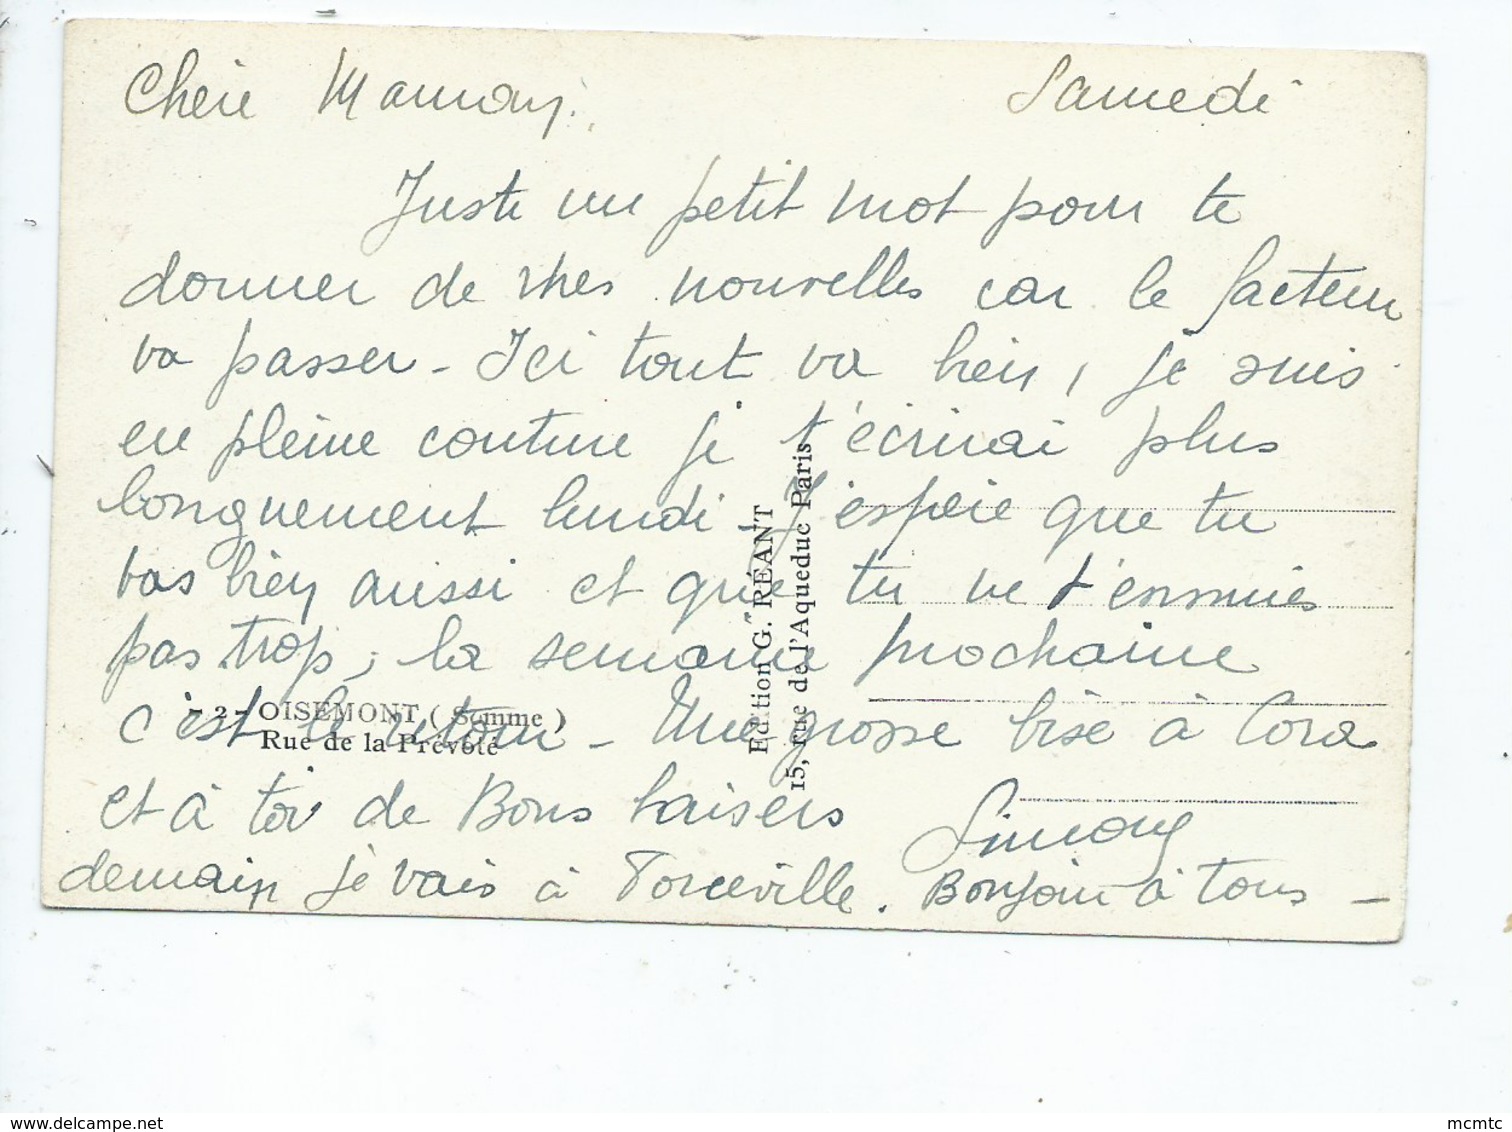 Chère Maman. Samedi
Juste un petit mot pour te
donner de mes nouvelles car le facteur
va passer - Ici tout va bien, je suis
en pleine couture je t'écrirai plus
longuement lundi - J'espère que tu
vas bien aussi et que tu ne t'ennuies
pas trop, la semaine prochaine
c'est le retour - Une grosse bise à Cora
et à toi de Bons baisers
Simone
demain je vais à Torceville. Bonjour à tous -
- 2 - OISEMONT (Somme)
Rue de la Prévôté
Edition G. RÉANT
15, rue de l'Aqueduc Paris
www.delcampe.net
mcmtc